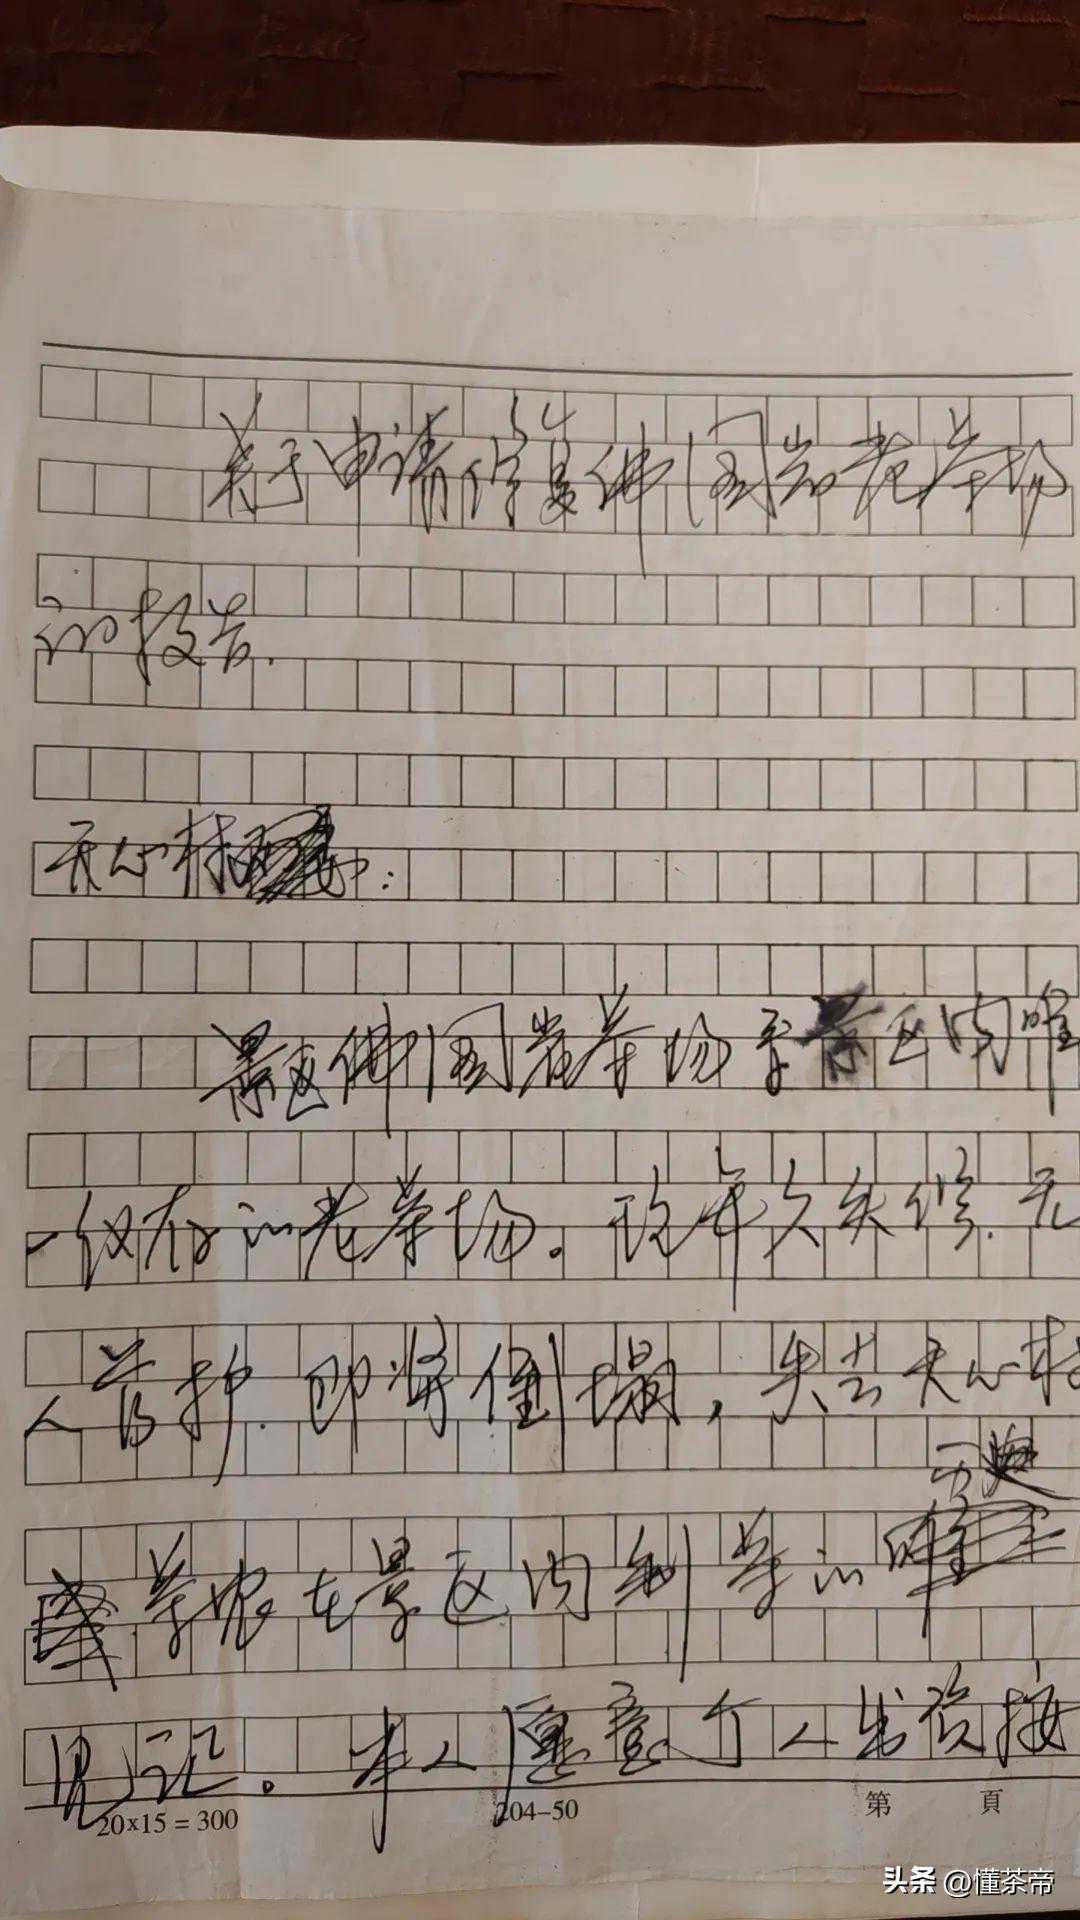 关于申请修复佛国岩老茶场
的报告.
天心村:
景区佛国岩茶场是景区内唯
一仅存的老茶场。现年久失修.无
人管护.即将倒塌，失去天心村
茶农在景区内制茶的历史
见证。本人愿意个人出资按
20x15=300 204-50 第 頁
头条 @懂茶帝